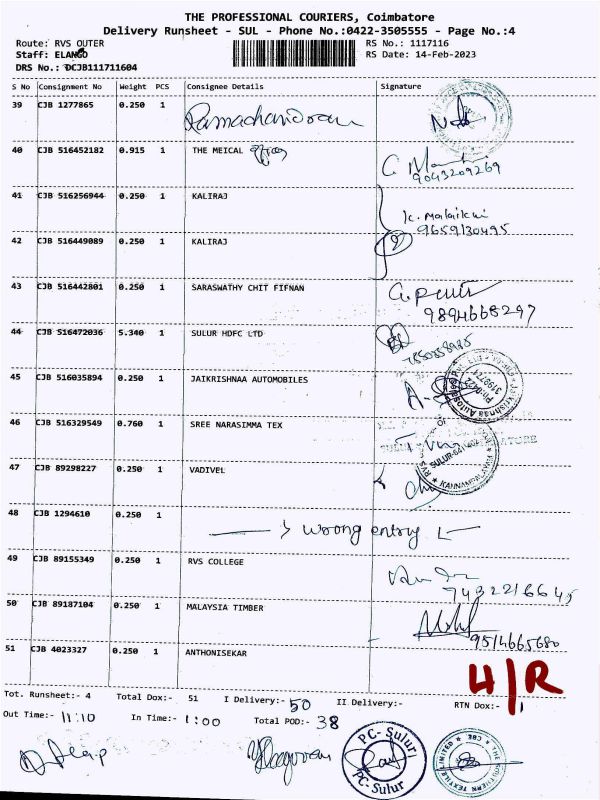 THE PROFESSIONAL COURIERS, Coimbatore
Delivery Runsheet - SUL - Phone No.:0422-3505555 - Page No.:4
Route: RVS OUTER
Staff: ELANGO
DRS No.: DCJB111711604
RS No.: 1117116
RS Date: 14-Feb-2023
S No Consignment No Weight PCS Consignee Details Signature
39 CJB 1277865 0.250 1 Ramachandran
40 CJB 516452182 0.915 1 THE MEICAL
9043209269
41 CJB 516256944 0.250 1 KALIRAJ
9659130495
42 CJB 516449089 0.250 1 KALIRAJ
43 CJB 516442801 0.250 1 SARASWATHY CHIT FIFNAN
9894668297
44 CJB 516472036 5.340 1 SULUR HDFC LTD
45 CJB 516035894 0.250 1 JAIKRISHNAA AUTOMOBILES
46 CJB 516329549 0.760 1 SREE NARASIMMA TEX
47 CJB 89298227 0.250 1 VADIVEL
48 CJB 1294610 0.250 1 wrong entry
49 CJB 89155349 0.250 1 RVS COLLEGE
50 CJB 89187104 0.250 1 MALAYSIA TIMBER
9514665680
51 CJB 4023327 0.250 1 ANTHONISEKAR
4/R
Tot. Runsheet:- 4 Total Dox:- 51 I Delivery:- 50 II Delivery:- RTN Dox:- 1
Out Time:- 11:10 In Time:- 1:00 Total POD:- 38
PC- Sulur
PC- Sulur